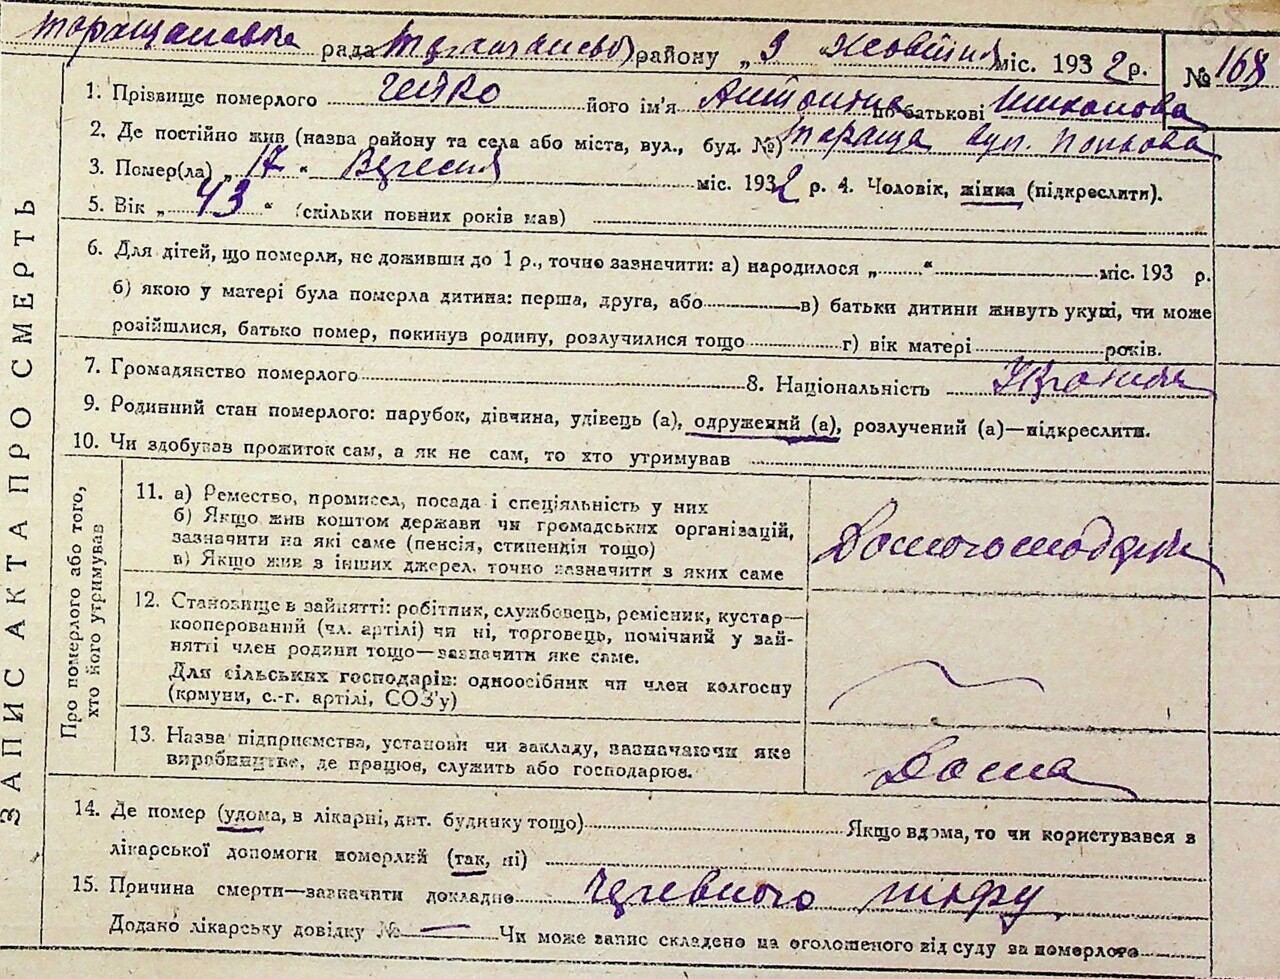 Таращанська рада Таращанськ району „ 9 Жовтня міс. 1932 р. № 168
1. Прізвище померлого його ім'я Антонина по батькові
2. Де постійно жив (назва району та села або міста, вул., буд. №) Тараща вул.
3. Помер(ла) „ 17 “ Вересня міс. 1932 р. 4. Чоловік, жінка (підкреслити).
5. Вік „ 43 “ (скільки повних років мав)
6. Для дітей, що померли, не доживши до 1 р., точно зазначити: а) народилося „ “ міс. 193 р.
б) якою у матері була померла дитина: перша, друга, або в) батьки дитини живуть укупі, чи може
розійшлися, батько помер, покинув родину, розлучилися тощо г) вік матері років.
7. Громадянство померлого 8. Національність
9. Родинний стан померлого: парубок, дівчина, удівець (а), одружений (а), розлучений (а)—підкреслити.
10. Чи здобував прожиток сам, а як не сам, то хто утримував
ЗАПИС АКТА ПРО СМЕРТЬ
Про померлого або того,
хто його утримував
11. а) Ремество, промисел, посада і спеціяльність у них
б) Якщо жив коштом держави чи громадських організацій,
зазначити на які саме (пенсія, стипендія тощо)
в) Якщо жив з інших джерел, точно зазначити з яких саме
Домогосподарк
12. Становище в зайнятті: робітник, службовець, ремісник, кустар—
кооперований (чл. артілі) чи ні, торговець, помічний у зай-
нятті член родини тощо—зазначити яке саме.
Для сільських господарів: одноосібник чи член колгоспу
(комуни, с.-г. артілі, СОЗ'у)
13. Назва підприємства, установи чи закладу, зазначаючи яке
виробництво, де працює, служить або господарює.
Дома
14. Де помер (удома, в лікарні, дит. будинку тощо) Якщо вдома, то чи користувався з
лікарської допомоги померлий (так, ні)
15. Причина смерти—зазначити докладно Черевного тифу
Додано лікарську довідку № — Чи може запис складено на оголошеного від суду за померлого